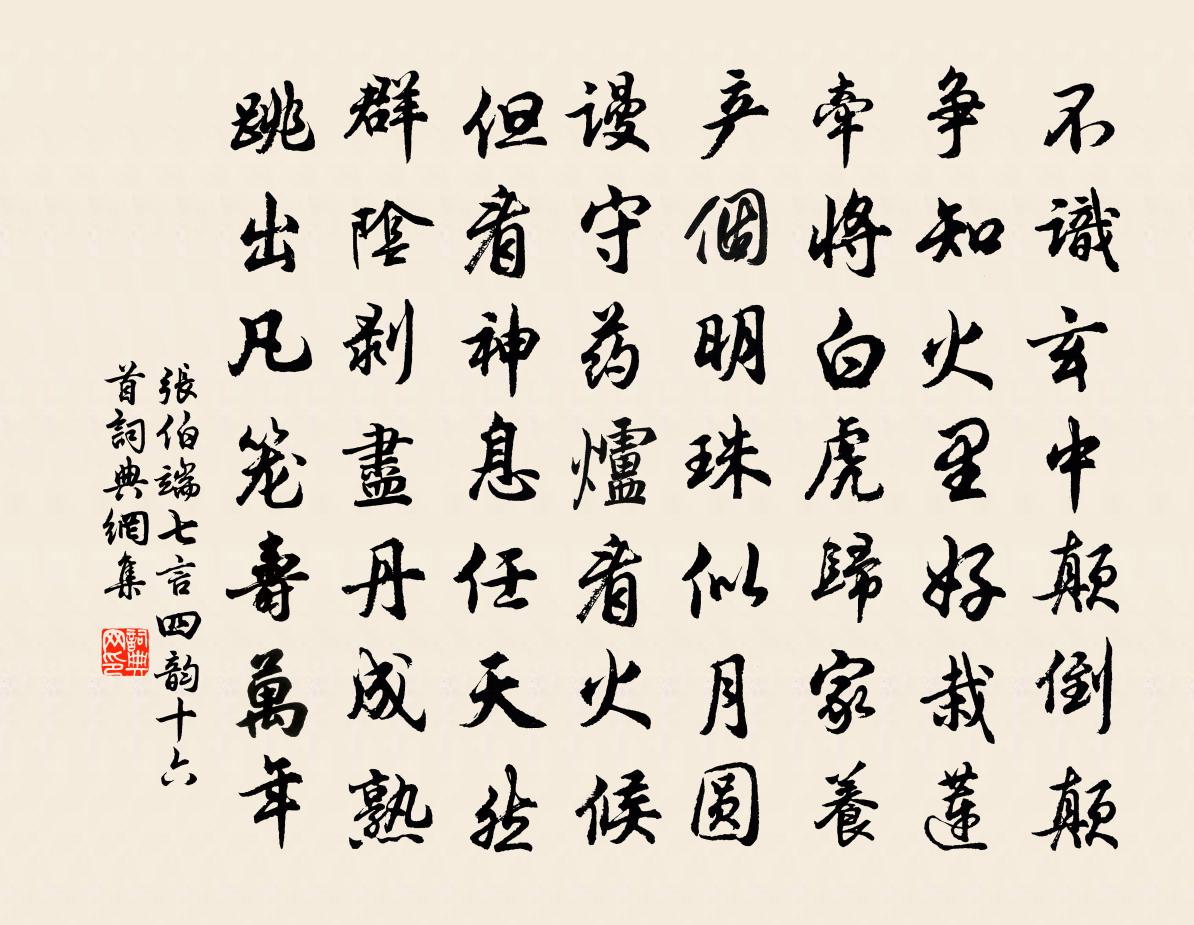 不識玄中颠倒颠
争知火里好栽蓮
牽將白虎歸家養
产個明珠似月圆
谩守药爐看火候
但看神息任天然
群陰剥盡丹成熟
跳出凡笼壽萬年
張伯端七言四韵十六
首詞典網集
詞典网印